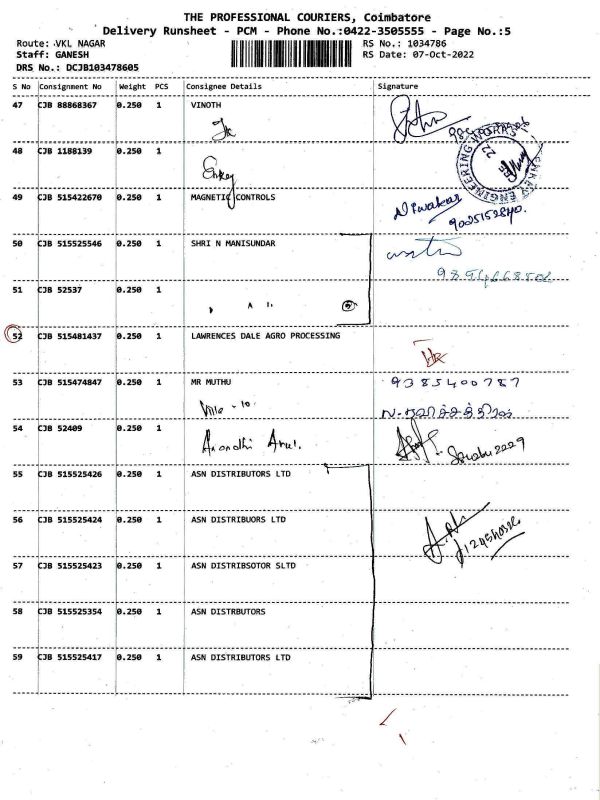 THE PROFESSIONAL COURIERS, Coimbatore
Delivery Runsheet - PCM - Phone No.:0422-3505555 - Page No.:5
Route: VKL NAGAR RS No.: 1034786
Staff: GANESH RS Date: 07-Oct-2022
DRS No.: DCJB103478605
S No Consignment No Weight PCS Consignee Details Signature
47 CJB 88868367 0.250 1 VINOTH
48 CJB 1188139 0.250 1
49 CJB 515422670 0.250 1 MAGNETIC CONTROLS
Niwakar
9025152840.
50 CJB 515525546 0.250 1 SHRI N MANISUNDAR
51 CJB 52537 0.250 1
52 CJB 515481437 0.250 1 LAWRENCES DALE AGRO PROCESSING
53 CJB 515474847 0.250 1 MR MUTHU 9385400787
Ville - 10
54 CJB 52409 0.250 1
55 CJB 515525426 0.250 1 ASN DISTRIBUTORS LTD
56 CJB 515525424 0.250 1 ASN DISTRIBUORS LTD
57 CJB 515525423 0.250 1 ASN DISTRIBSOTOR SLTD
58 CJB 515525354 0.250 1 ASN DISTRBUTORS
59 CJB 515525417 0.250 1 ASN DISTRIBUTORS LTD